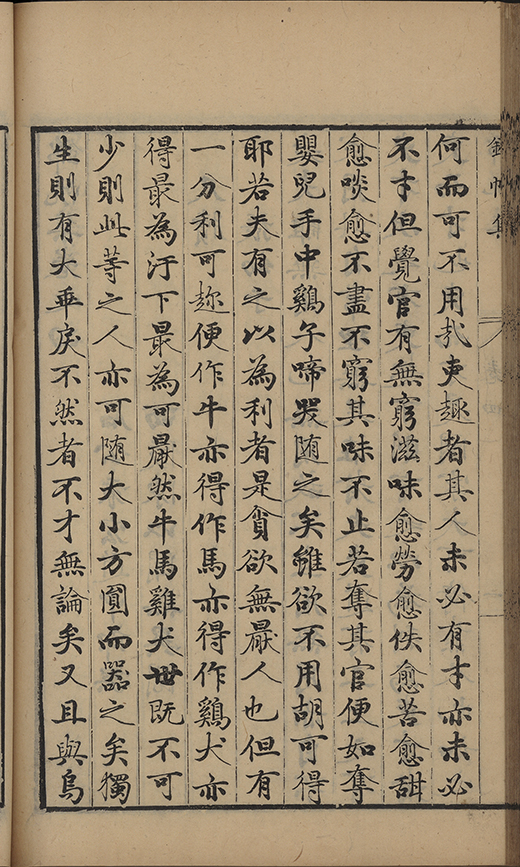 錦帆集
何而可不用哉吏趣者其人未必有才亦未必
不才但覺官有無窮滋味愈勞愈佚愈苦愈甜
愈啖愈不盡不窮其味不止若奪其官便如奪
嬰兒手中鷄子啼哭随之矣雖欲不用胡可得
耶若夫有之以為利者是貪欲無厭人也但有
一分利可趂便作牛亦得作馬亦得作鷄犬亦
得最為汙下最為可厭然牛馬雞犬世既不可
少則此等之人亦可随大小方圓而器之矣獨
生則有大乖戾不然者不才無論矣又且與烏